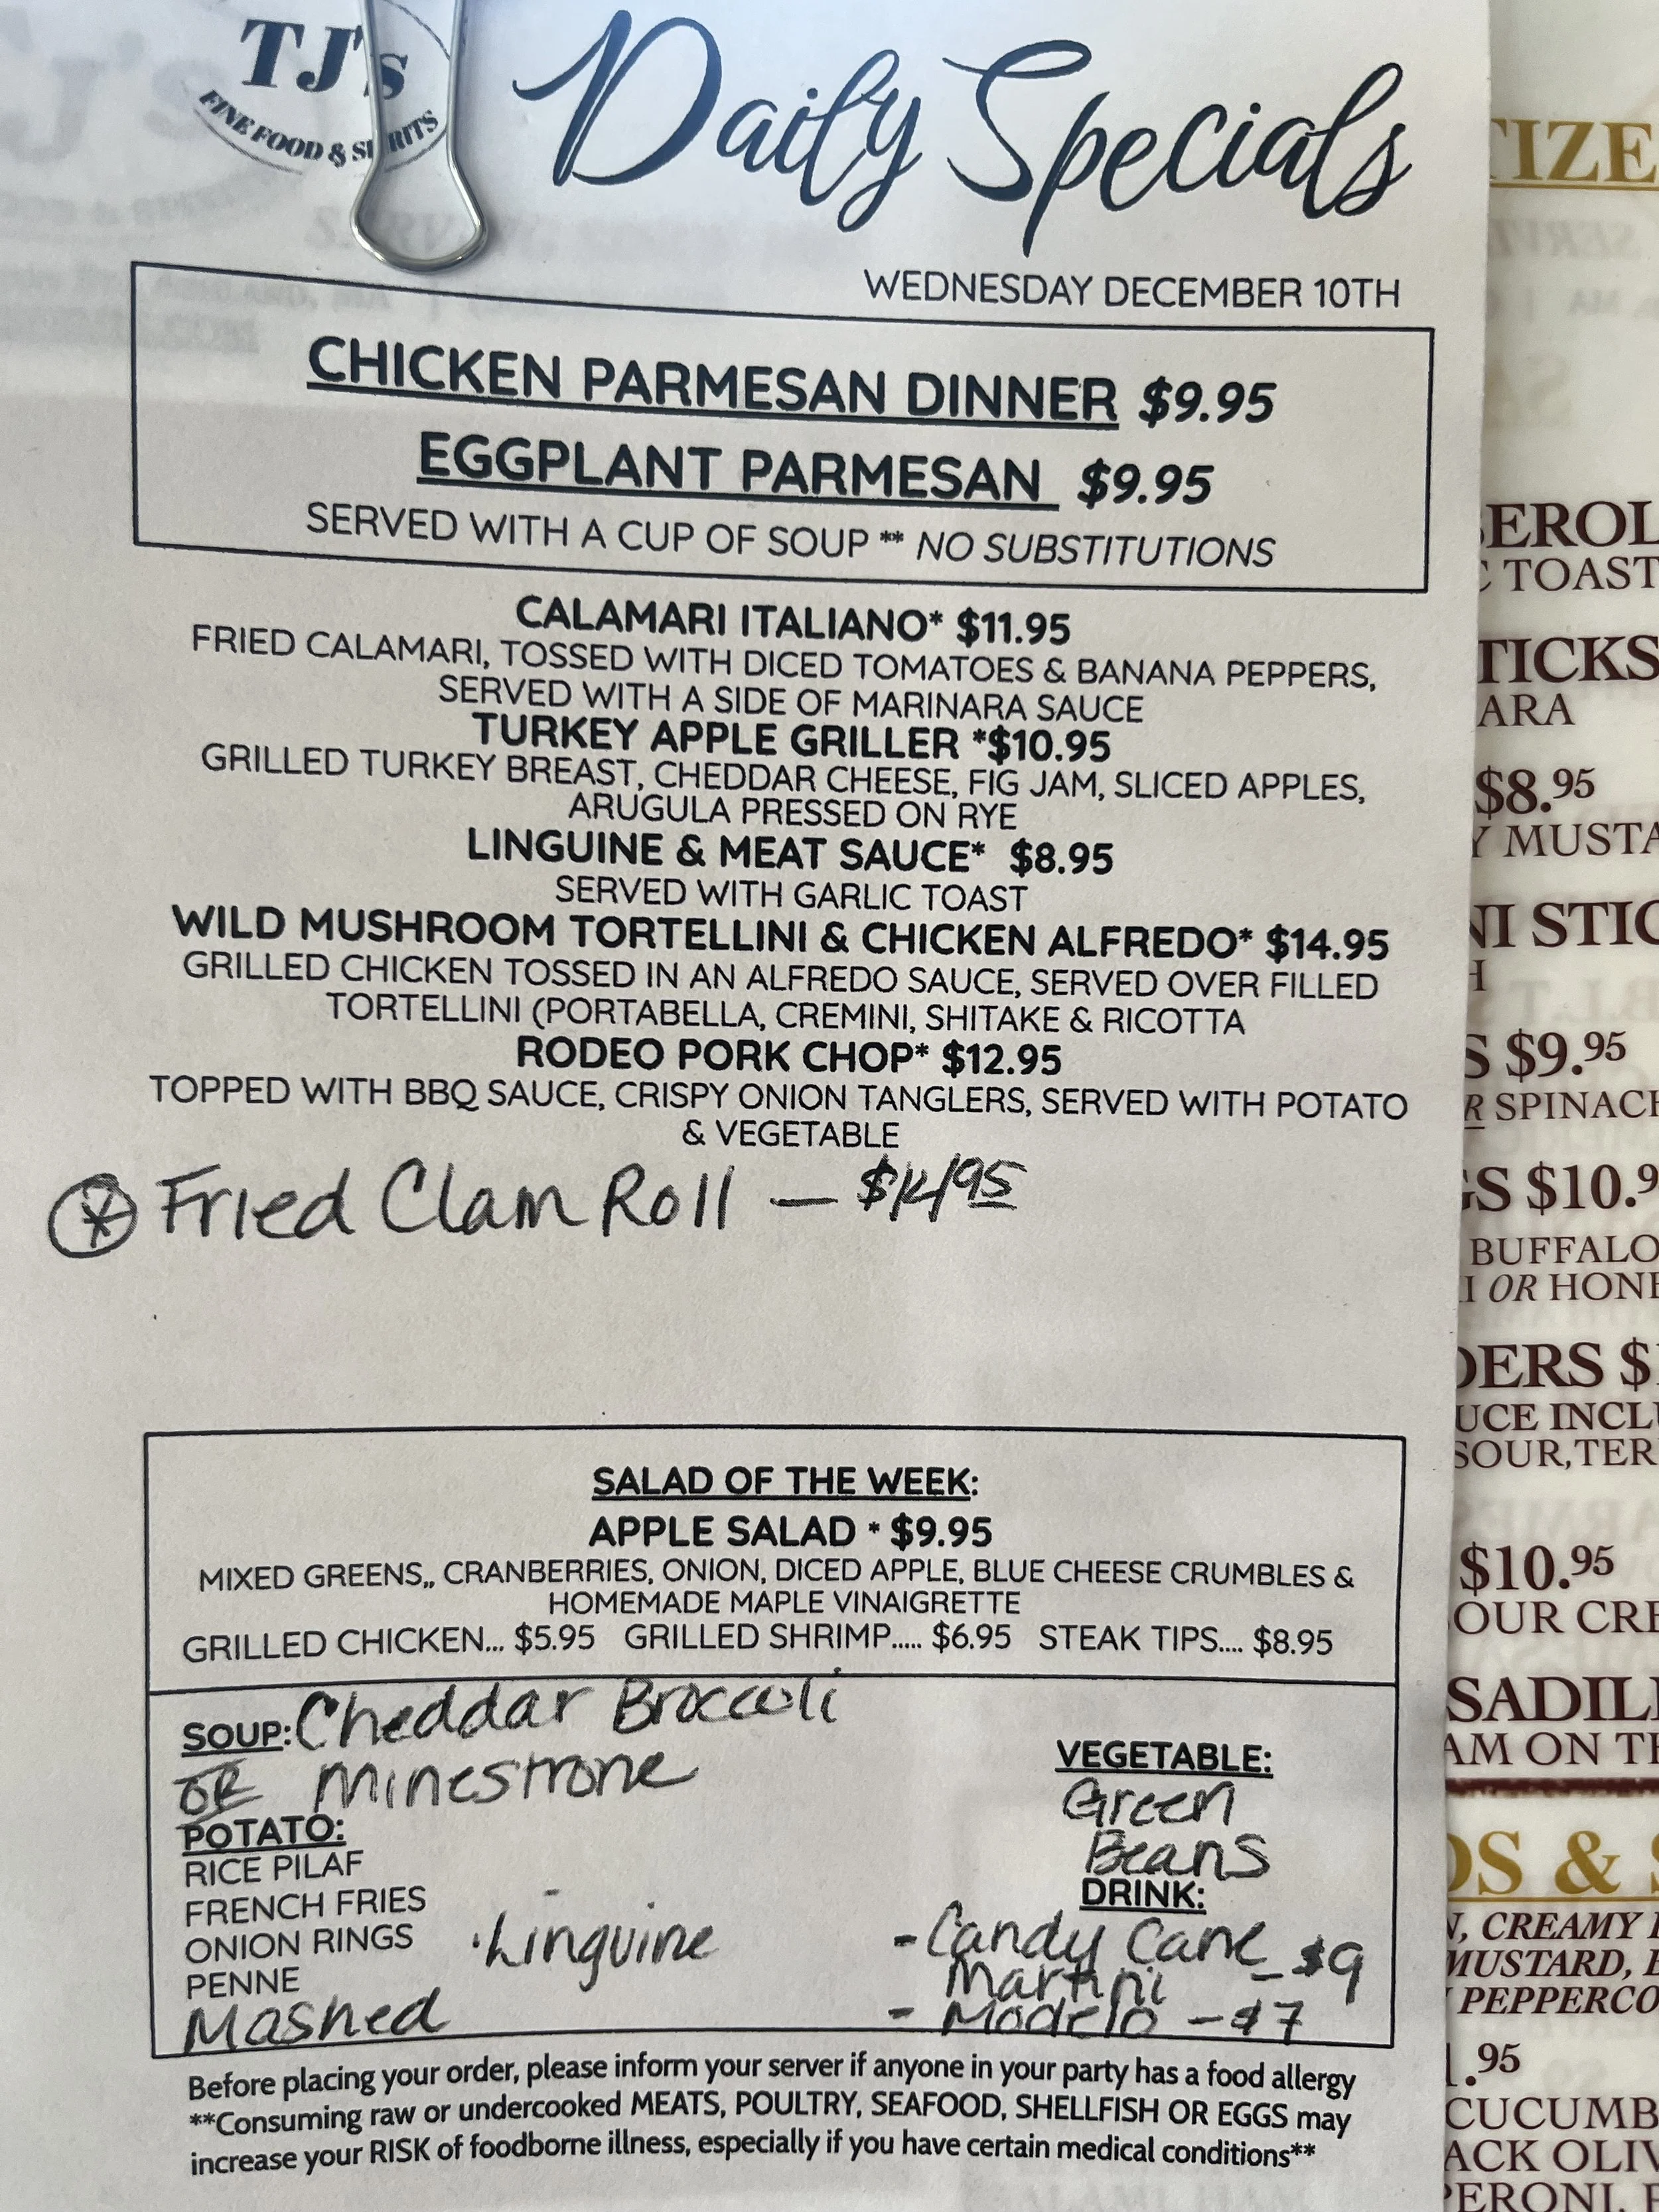 TJ's
FINE FOOD & SPIRITS
Daily Specials
WEDNESDAY DECEMBER 10TH
CHICKEN PARMESAN DINNER $9.95
EGGPLANT PARMESAN $9.95
SERVED WITH A CUP OF SOUP ** NO SUBSTITUTIONS
CALAMARI ITALIANO* $11.95
FRIED CALAMARI, TOSSED WITH DICED TOMATOES & BANANA PEPPERS,
SERVED WITH A SIDE OF MARINARA SAUCE
TURKEY APPLE GRILLER *$10.95
GRILLED TURKEY BREAST, CHEDDAR CHEESE, FIG JAM, SLICED APPLES,
ARUGULA PRESSED ON RYE
LINGUINE & MEAT SAUCE* $8.95
SERVED WITH GARLIC TOAST
WILD MUSHROOM TORTELLINI & CHICKEN ALFREDO* $14.95
GRILLED CHICKEN TOSSED IN AN ALFREDO SAUCE, SERVED OVER FILLED
TORTELLINI (PORTABELLA, CREMINI, SHITAKE & RICOTTA
RODEO PORK CHOP* $12.95
TOPPED WITH BBQ SAUCE, CRISPY ONION TANGLERS, SERVED WITH POTATO
& VEGETABLE
* Fried Clam Roll — $14.95
SALAD OF THE WEEK:
APPLE SALAD * $9.95
MIXED GREENS,, CRANBERRIES, ONION, DICED APPLE, BLUE CHEESE CRUMBLES &
HOMEMADE MAPLE VINAIGRETTE
GRILLED CHICKEN... $5.95 GRILLED SHRIMP..... $6.95 STEAK TIPS.... $8.95
SOUP: Cheddar Broccoli
OR Minestrone
POTATO:
RICE PILAF
FRENCH FRIES
ONION RINGS
PENNE
Mashed
· Linguine
VEGETABLE:
Green
Beans
DRINK:
- Candy Cane
Martini - $9
- Modelo - $7
Before placing your order, please inform your server if anyone in your party has a food allergy
**Consuming raw or undercooked MEATS, POULTRY, SEAFOOD, SHELLFISH OR EGGS may
increase your RISK of foodborne illness, especially if you have certain medical conditions**
TOAST
$8.95
$9.95
SPINACH
$10.9
BUFFALO
OR HONE
$10.95
OUR CRE
AM ON TH
& S
, CREAMY
MUSTARD,
PEPPERCO
.95
CUCUMB